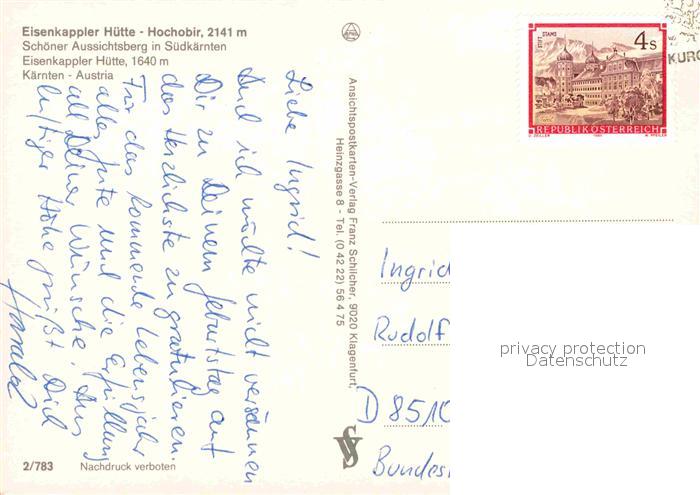 Eisenkappler Hütte - Hochobir, 2141 m
Schöner Aussichtsberg in Südkärnten
Eisenkappler Hütte, 1640 m
Kärnten - Austria
Liebe Ingrid!
Auch ich möchte nicht versäumen
Dir zu Deinem Geburtstag auf
das Herzlichste zu gratulieren.
Für das kommende Lebensjahr
alles Gute und die Erfüllung
all Deiner Wünsche. Aus
luftiger Höhe grüßt Dich
Harald
2/783 Nachdruck verboten
Ansichtspostkarten-Verlag Franz Schilcher, 9020 Klagenfurt,
Heinzgasse 8 - Tel. (0 42 22) 56 4 75
STIFT STAMS
4 S
REPUBLIK ÖSTERREICH
KURO
Ingrid
Rudolf
D 8510
Bundes
privacy protection
Datenschutz